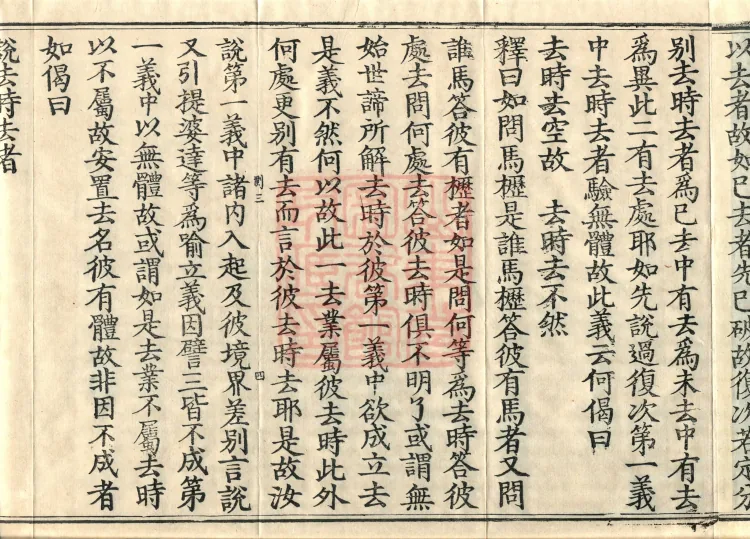 以去者故如已去者先已破故復次若定分
別去時去者為已去中有去為未去中有去
為異此二有去處耶如先說過復次第一義
中去時去者驗無體故此義云何偈曰
去時去空故　去時去不然
釋曰如問馬櫪是誰馬櫪答彼有馬者又問
誰馬答彼有櫪者如是問何等為去時答彼
處去問何處去答彼去時俱不明了或謂無
始世諦所解去時於彼第一義中欲成立去
是義不然何以故此一去業屬彼去時此外
何處更別有去而言於彼去時去耶是故汝
劉三　四
說第一義中諸內入起及彼境界差別言說
又引提婆達等為喻立義因譬三皆不成第
一義中以無體故或謂如是去業不屬去時
以不屬故安置去名彼有體故非因不成者
如偈曰
說去時去者